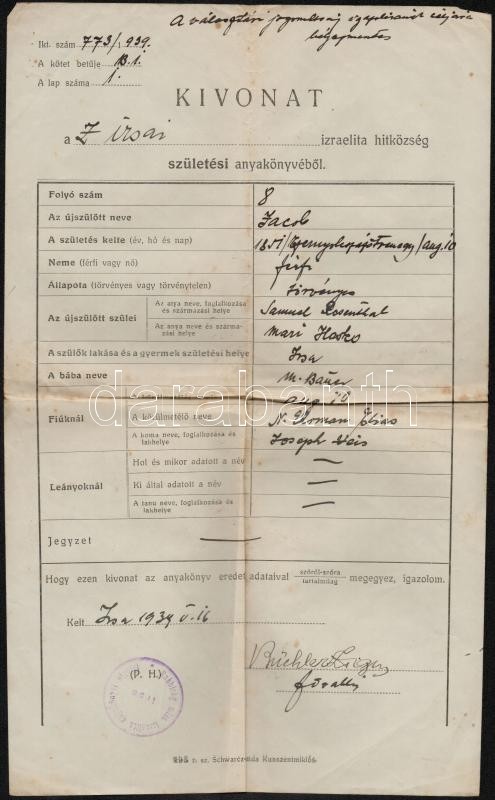 A választási jogosultság igazolásának céljára
bélyegmentes
Ikt. szám 773/1939.
A kötet betűje B.1.
A lap száma 1.
KIVONAT
a Irsai izraelita hitközség
születési anyakönyvéből.
Folyó szám 8
Az újszülött neve Jacob
A születés kelte (év, hó és nap) 1851/ /aug. 10
Neme (férfi vagy nő) férfi
Állapota (törvényes vagy törvénytelen) törvényes
Az újszülött szülei
Az atya neve, foglalkozása és származási helye Samuel Rosenthal
Az anya neve és származási helye Mari
A szülők lakása és a gyermek születési helye Irsa
A bába neve M. Bauer
aug 18
Fiúknál
A körülmetélő neve N. Ehrmann
A koma neve, foglalkozása és lakhelye Joseph Weis
Leányoknál
Hol és mikor adatott a név —
Ki által adatott a név —
A tanu neve, foglalkozása és lakhelye —
Jegyzet —
Hogy ezen kivonat az anyakönyv eredeti adataival szóról-szóra
tartalmilag megegyez, igazolom.
Kelt Irsa 1939 V. 16
(P. H.)
Büchler
főrabbi
darabanth
295 r. sz. Schwarcz-nyomda Kunszentmiklós